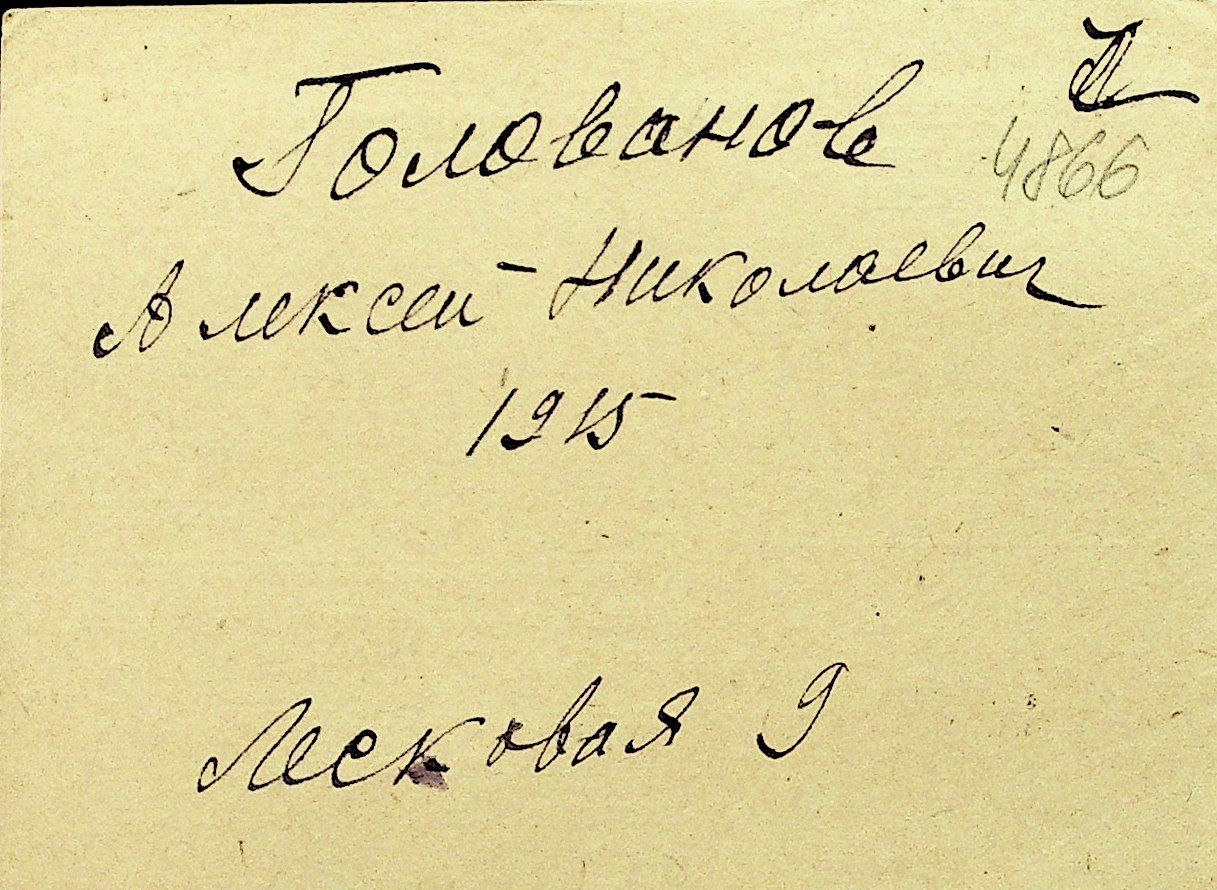 Голованов
4866
Алексей Николаевич
1915
Лесковая 9